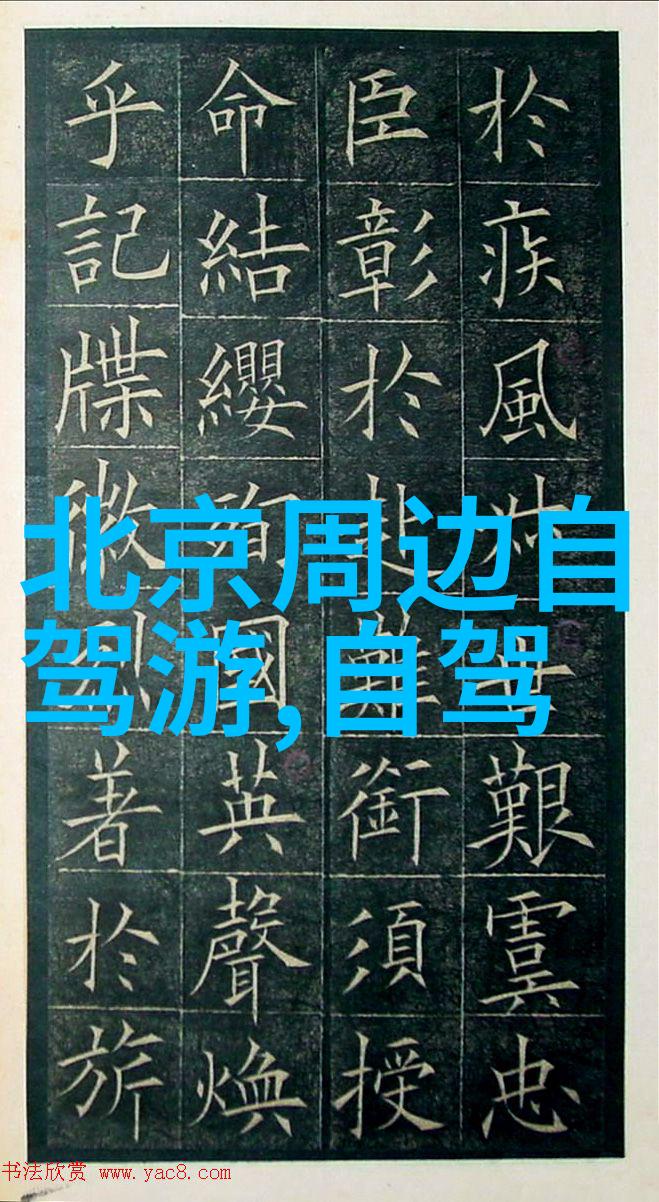 於疾風艱虞忠
臣彰於赴難銜須授
命結纓殉國英聲煥
乎記牒徽烈著於旂
北京周边自
驾游,自驾
书法欣赏 www.yac8.com